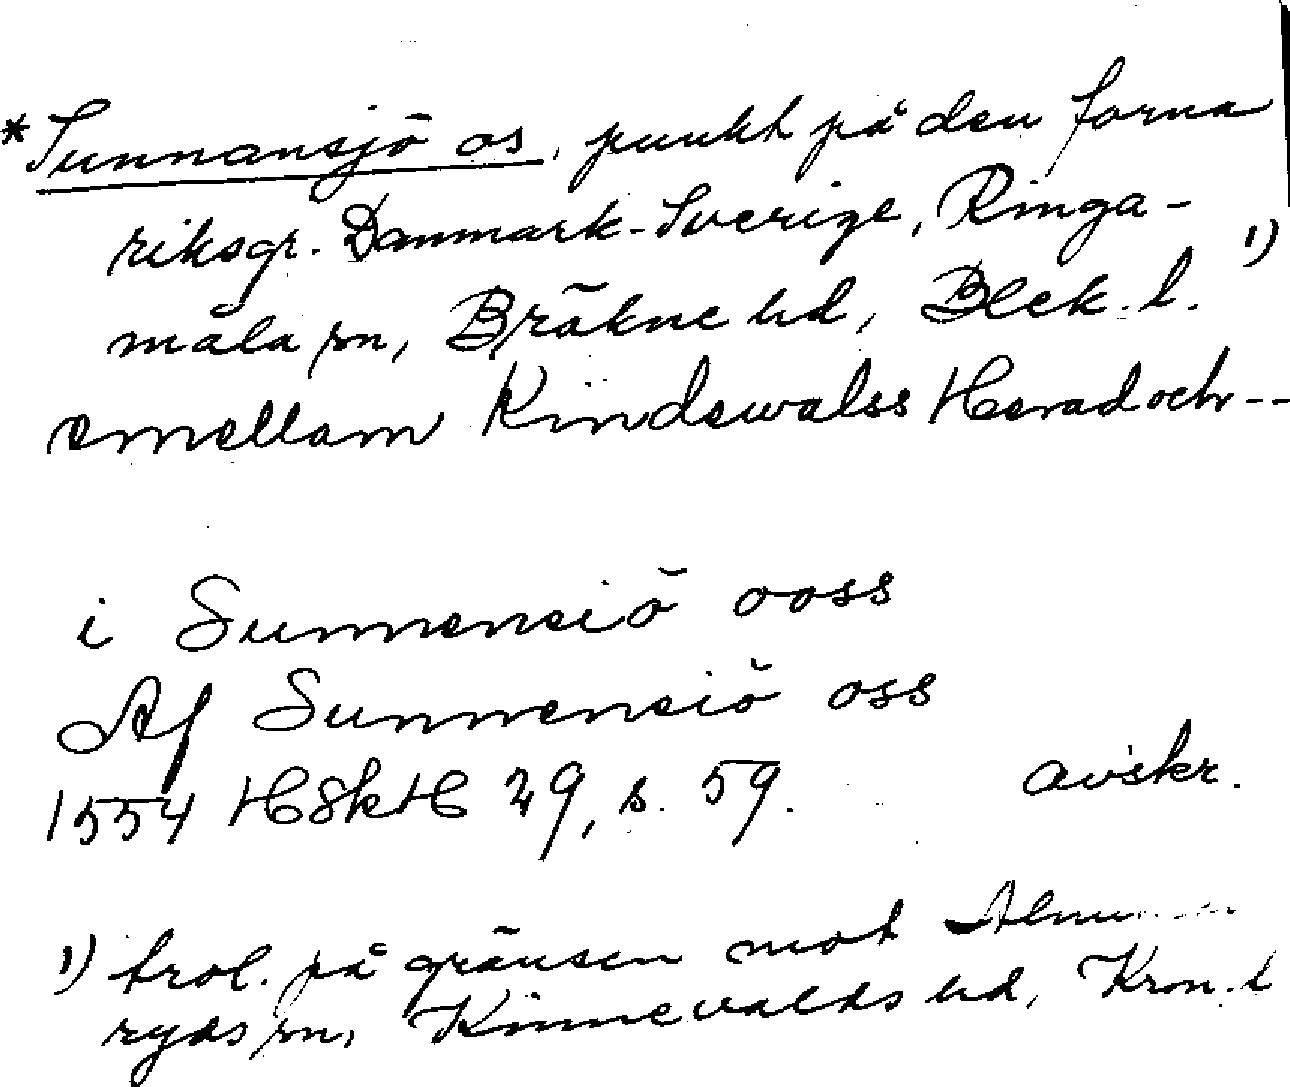 *Sunnansjö os, punkt på den forna
riksgr. Danmark-Sverige, Ringa-
måla sn, Bräkne hd, Blek. l. 1)
emellam Kindewalss Herad och--
i Sunnensiö ooss
Af Sunnensiö oss
1554 HSkH 29, s. 59. avskr.
1) trol. på gränsen mot
ryds sn, Kinnevalds hd, Kron. l